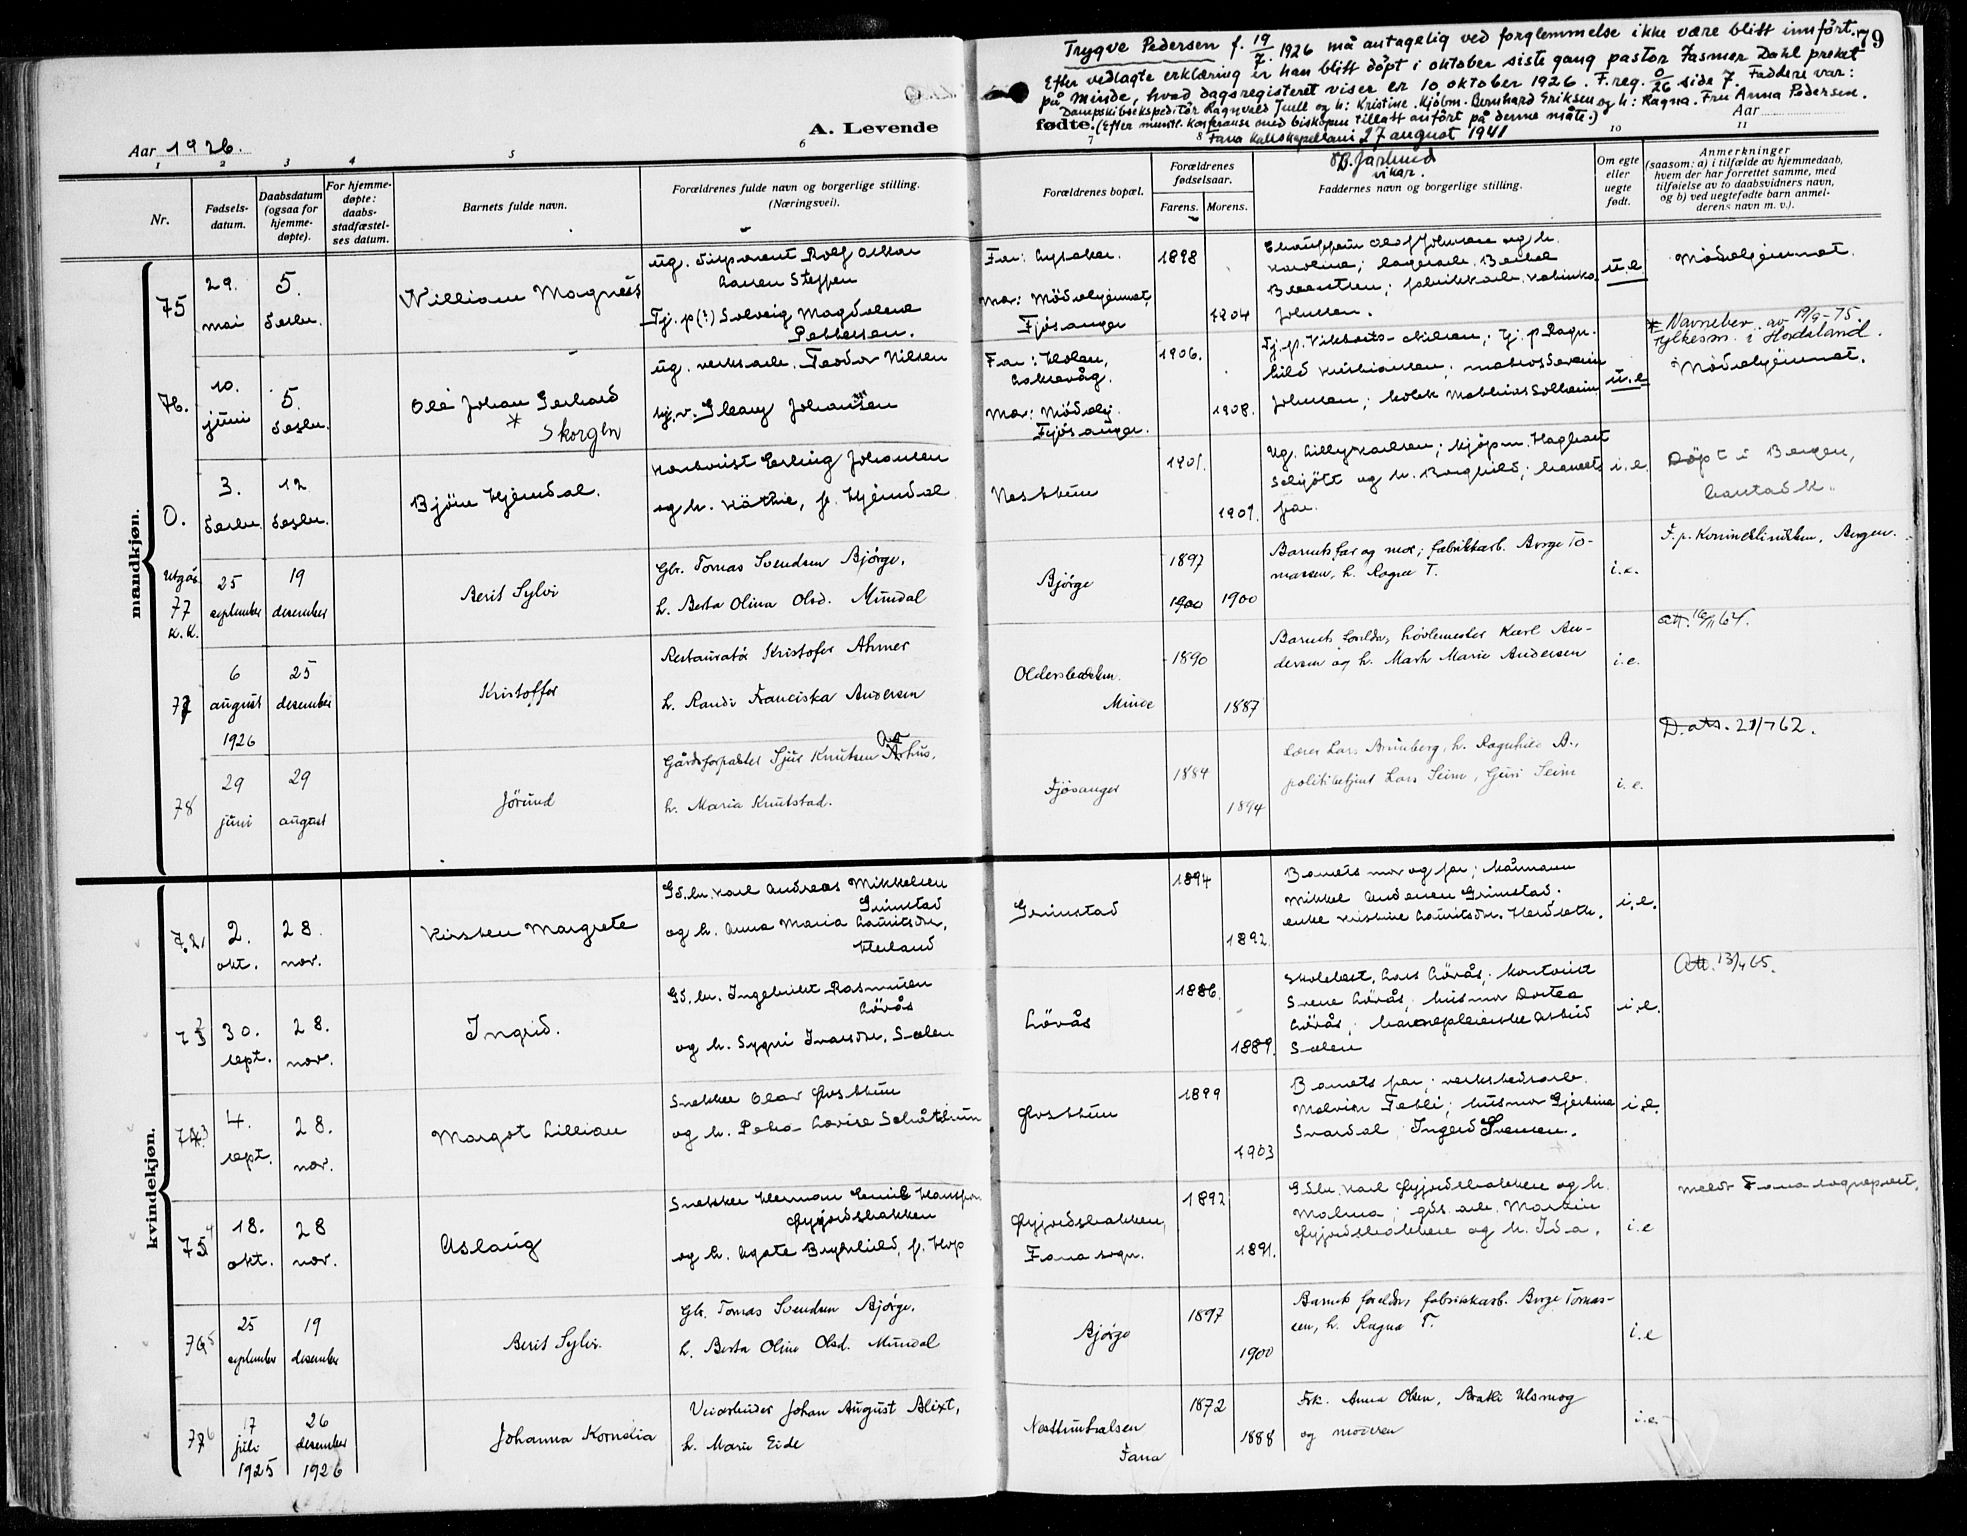 Trygve Pedersen f. 19/7. 1926 må antagelig ved forglemmelse ikke være blitt innført.
79
Efter vedlagte erklæring er han blitt døpt i oktober siste gang pastor Fasmer Dahl preket
på Minde, hvad dagsregisteret viser er 10 oktober 1926. F.reg. side 7. Faddere var:
Dampskibsekspeditør Ragnvald Juell og h: Kristine. Kjøbm. Bernhard Eriksen og h: Ragna. Fru Anna Pedersen.
(Efter muntl. konferanse med biskopen tillatt anført på denne måte.)
Fana kallskapellani 27 august 1941
vikar.
Aar 1926.
A. Levende
fødte.
Aar
1 2 3 4 5 6 7 8 10 11
Nr.
Fødsels-
datum.
Daabsdatum
(ogsaa for
hjemme-
døpte).
For hjemme-
døpte:
daabs-
stadfæstel-
ses datum.
Barnets fulde navn.
Forældrenes fulde navn og borgerlige stilling.
(Næringsvei).
Forældrenes bopæl.
Forældrenes
fødselsaar.
Farens. Morens.
Faddernes navn og borgerlige stilling.
Om egte
eller
uegte
født.
Anmerkninger
(saasom: a) i tilfælde av hjemmedaab,
hvem der har forrettet samme, med
tilføielse av to daabsvidners navn,
og b) ved uegtefødte barn anmel-
derens navn m. v.).
mandkjøn.
75
29.
mai
5.
desbr.
William Magnus
ug. disponent Rolf Oskar
Larsen Steffen
Tj. p(?) Solveig Magdalena
Pettersen.
Far: Lysaker.
Mor: Mødrehjemmet
Fjøsanger
1898
1904
Karoline;
Johnsen.
u.e.
Mødrehjemmet.
76.
10.
juni
5.
desbr.
Ole Johan Gerhard
* Skorgen
ug. verksarb. Teodor Nilsen
Johansen
Far: Holen,
Laksevåg.
Mor: Mødrehj.
Fjøsanger.
1906.
1908.
u.e.
* Navnebev. av 19/9-75.
Fylkesm. i Hordaland.
Mødrehjemmet.
0.
3.
desbr.
12
desbr.
Bjørn Hjemdal.
Kontorist Erling Johansen
og h. Käthie, f. Hjemdal
Nesttun
1901.
1901.
Ug. Lilly Karlsen; kjøpm. Hagbart
og h. Borghild; barnets
far.
i.e.
Døpt i Bergen,
Utgår
77
K.K.
25
september
19
desember
Berit Sylvi
Gbr. Tomas Svendsen Bjørge,
h. Berta Olina Olsd. Mundal
Bjørge
1897
1900 1900
Barnets far og mor; fabrikkarb. Børge To-
massen, h. Ragna T.
i.e.
F. p. Kvinneklinikken, Bergen.
77
6
august
1926
25
desember
Kristoffer
Restauratør Kristofer Ahmer
h. Randi Franciska Andersen
Oldersbakken.
Minde
1890
1887
Barnets foreldre, høvlemester Karl An-
dersen og h. Mark Marie Andersen
i.e.
Att. 16/11 64.
78
29
juni
29
august
Jørund
Gårdsforpakter Sjur Knutsen Århus,
Aa
h. Maria Knutstad.
Fjøsanger
1884
1894
Lærer Lars Brunborg, h. Ragnhild B.,
politibetjent Lars Seim, Guri Seim
i.e.
D.att. 21/7 62.
kvindekjøn.
2.
okt.
28
nov.
Kirsten Margrete
Gd.br. Karl Andreas Mikkelsen
Grimstad
og h. Anna Maria Lauritsdtr.
Grimstad
1894
1892.
Barnets mor og far; kårmann
Mikkel Andersen Grimstad.
enke Kristine Lauritsdtr.
i.e.
73
30.
sept.
28.
nov.
Ingrid.
Gd.br. Ingebrikt Rasmussen
Lørås
og h. Sygni Ivarsdtr. Sælen
Lørås
1886.
1889.
Skolebest. Lars Lørås; kontorist
Svene Lørås; husmor Dortea
Lørås;
Sælen
i.e.
Att. 13/4 65.
74
3
4.
sept.
28.
nov.
Margot Lillian
Snekker Olav Øvsttun
Øvsttun
1899
1903
Barnets far; verkstedsarb.
Malvin Fetli; husmor Gjertina
Svardal; Ingerd Svensen.
i.e.
75
4
18.
okt.
28
nov.
Aslaug
Snekker Herman Emil Hansson
Øyjordsbakken
og h. Agate Brynhild, f. Hop
Øyjordsbakken,
Fana sogn.
1892
1891.
Gdbr. Karl Øyjordsbakken og h.
Malma; gds.arb. Martin
Øyjordsbakken og h. Ida.
i.e
meldt Fana sogneprest.
76
5
25
september
19
desember
Berit Sylvi.
Gbr. Tomas Svendsen Bjørge.
h. Berta Oline Olsd. Mundal
Bjørge
1897
1900
Barnets foreldre, fabrikkarb. Børge Tomas-
sen, h. Ragna T.
i.e
77
6
17
juli
1925
26
desember
1926
Johanna Kornelia
Veiarbeider Johan August Blixt,
h. Marie Eide
Nesttunhalsen
Fana
1872
1888
Frk. Anna Olsen,
og moren
i.e.